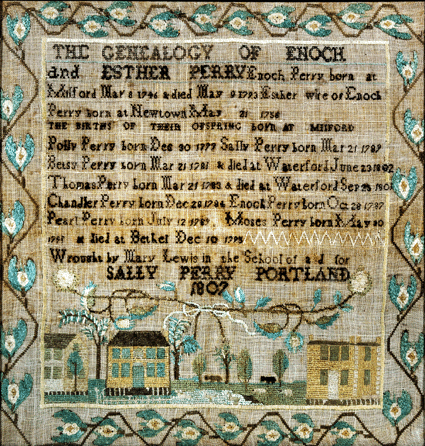 THE GENEALOGY OF ENOCH
and ESTHER PERRY Enoch Perry born at
Milford Mar 8 1746 & died May 9 1793 Esther wife of Enoch
Perry born at Newtown May 21 1756
THE BIRTHS OF THEIR OFSPRING BORN AT MILFORD
Polly Perry born Dec 30 1777 Sally Perry born Mar 21 1789
Betsy Perry born Mar 21 1781 & died at Waterford June 23 1802
Thomas Perry born Mar 21 1783 & died at Waterford Sep
Chandler Perry born Dec 28 1784 Enoch Perry born Oct 28 1787
Pearl Perry born July 12 1789 Moses Perry born May 30
1791 & died at Bethel Dec 10
Wrought by Mary Lewis in the School of and for
SALLY PERRY PORTLAND
1807